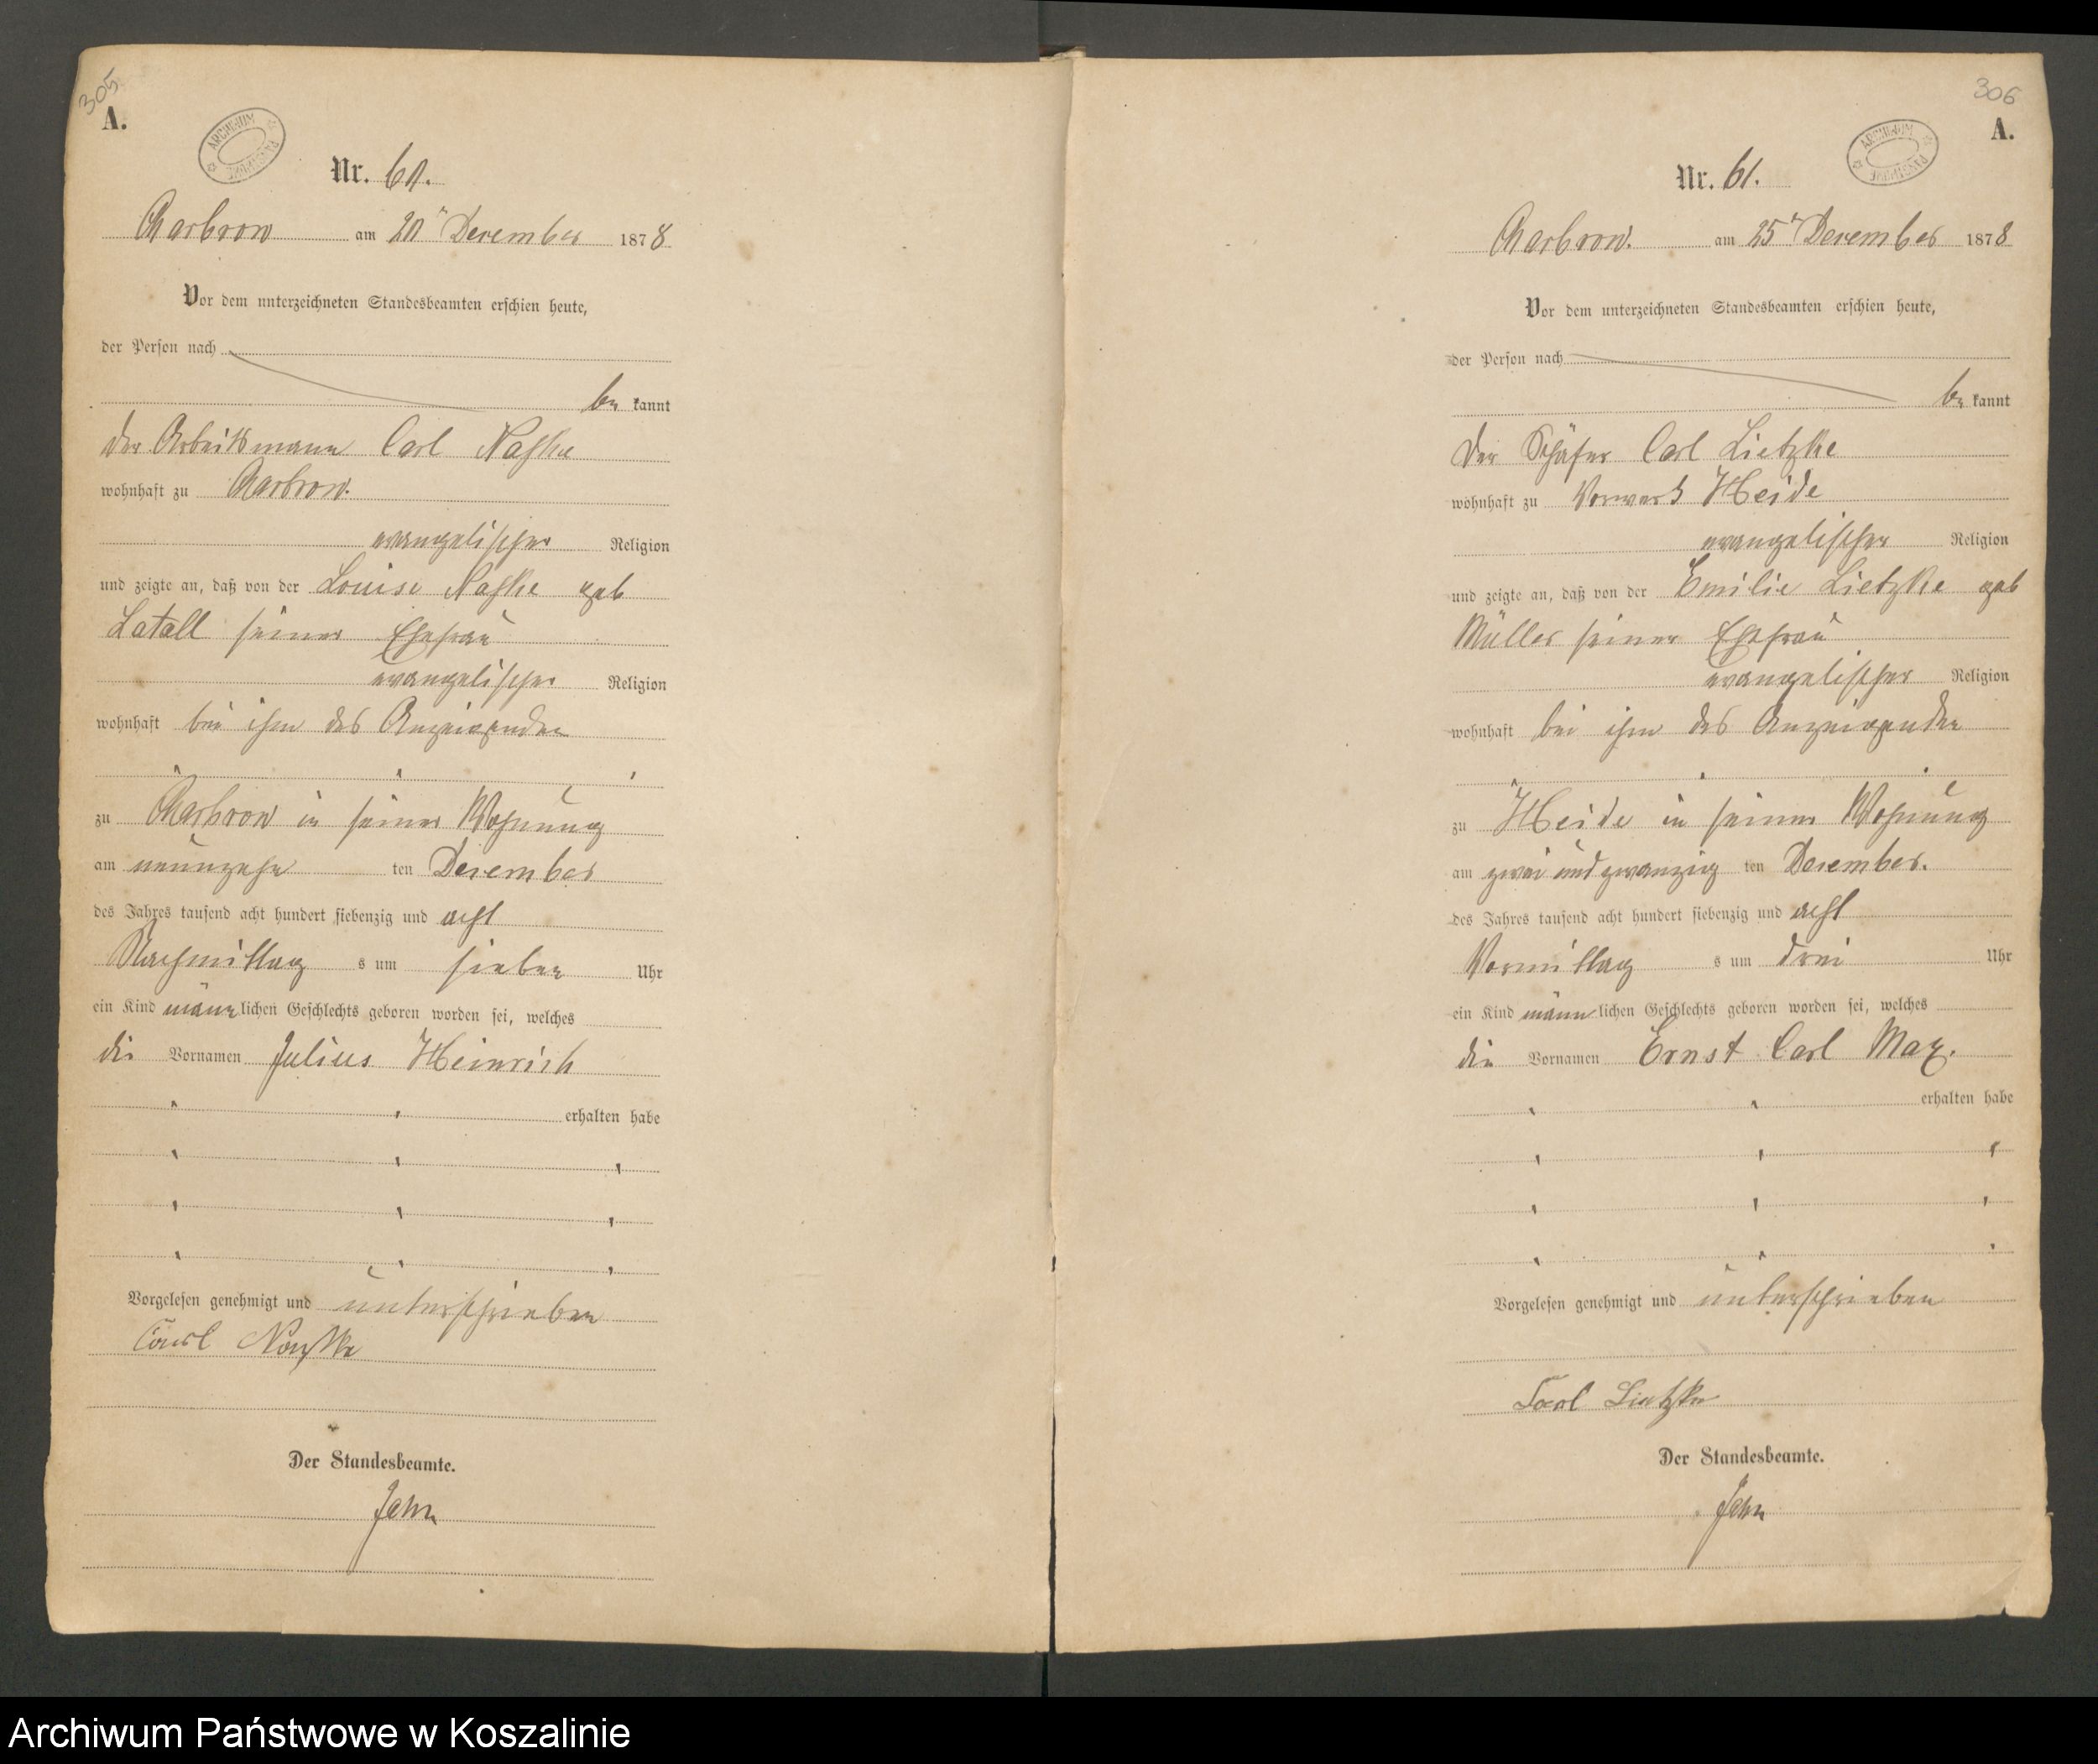 305
A.
ARCHIWUM PAŃSTWOWE
Nr. 60.
Charbrow am 20ⁿ December 1878
Vor dem unterzeichneten Standesbeamten erschien heute,
der Person nach
be kannt
der Arbeitsmann Carl Naschke
wohnhaft zu Charbrow.
evangelischer Religion
und zeigte an, daß von der Louise Naschke geb
Latall seiner Ehefrau
evangelischer Religion
wohnhaft bei ihm des Anzeigenden
zu Charbrow in seiner Wohnung
am neunzehn ten December
des Jahres tausend acht hundert siebenzig und acht
Nachmittag s um sieben Uhr
ein Kind männlichen Geschlechts geboren worden sei, welches
die Vornamen Julius Heinrich
erhalten habe
Vorgelesen genehmigt und unterschrieben
Carl
Der Standesbeamte.
Jahn
306
A.
ARCHIWUM PAŃSTWOWE
Nr. 61.
Charbrow. am 25ⁿ December 1878
Vor dem unterzeichneten Standesbeamten erschien heute,
der Person nach
be kannt
Der Schäfer Carl Lietzke
wohnhaft zu Vorwerk Heide
evangelischer Religion
und zeigte an, daß von der Emilie Lietzke geb
Müller seiner Ehefrau
evangelischer Religion
wohnhaft bei ihm des Anzeigenden
zu Heide in seiner Wohnung
am zwei und zwanzig ten December.
des Jahres tausend acht hundert siebenzig und acht
Vormittag s um drei Uhr
ein Kind männlichen Geschlechts geboren worden sei, welches
die Vornamen Ernst Carl Max.
erhalten habe
Vorgelesen genehmigt und unterschrieben
Carl Lietzke
Der Standesbeamte.
Jahn
Archiwum Państwowe w Koszalinie